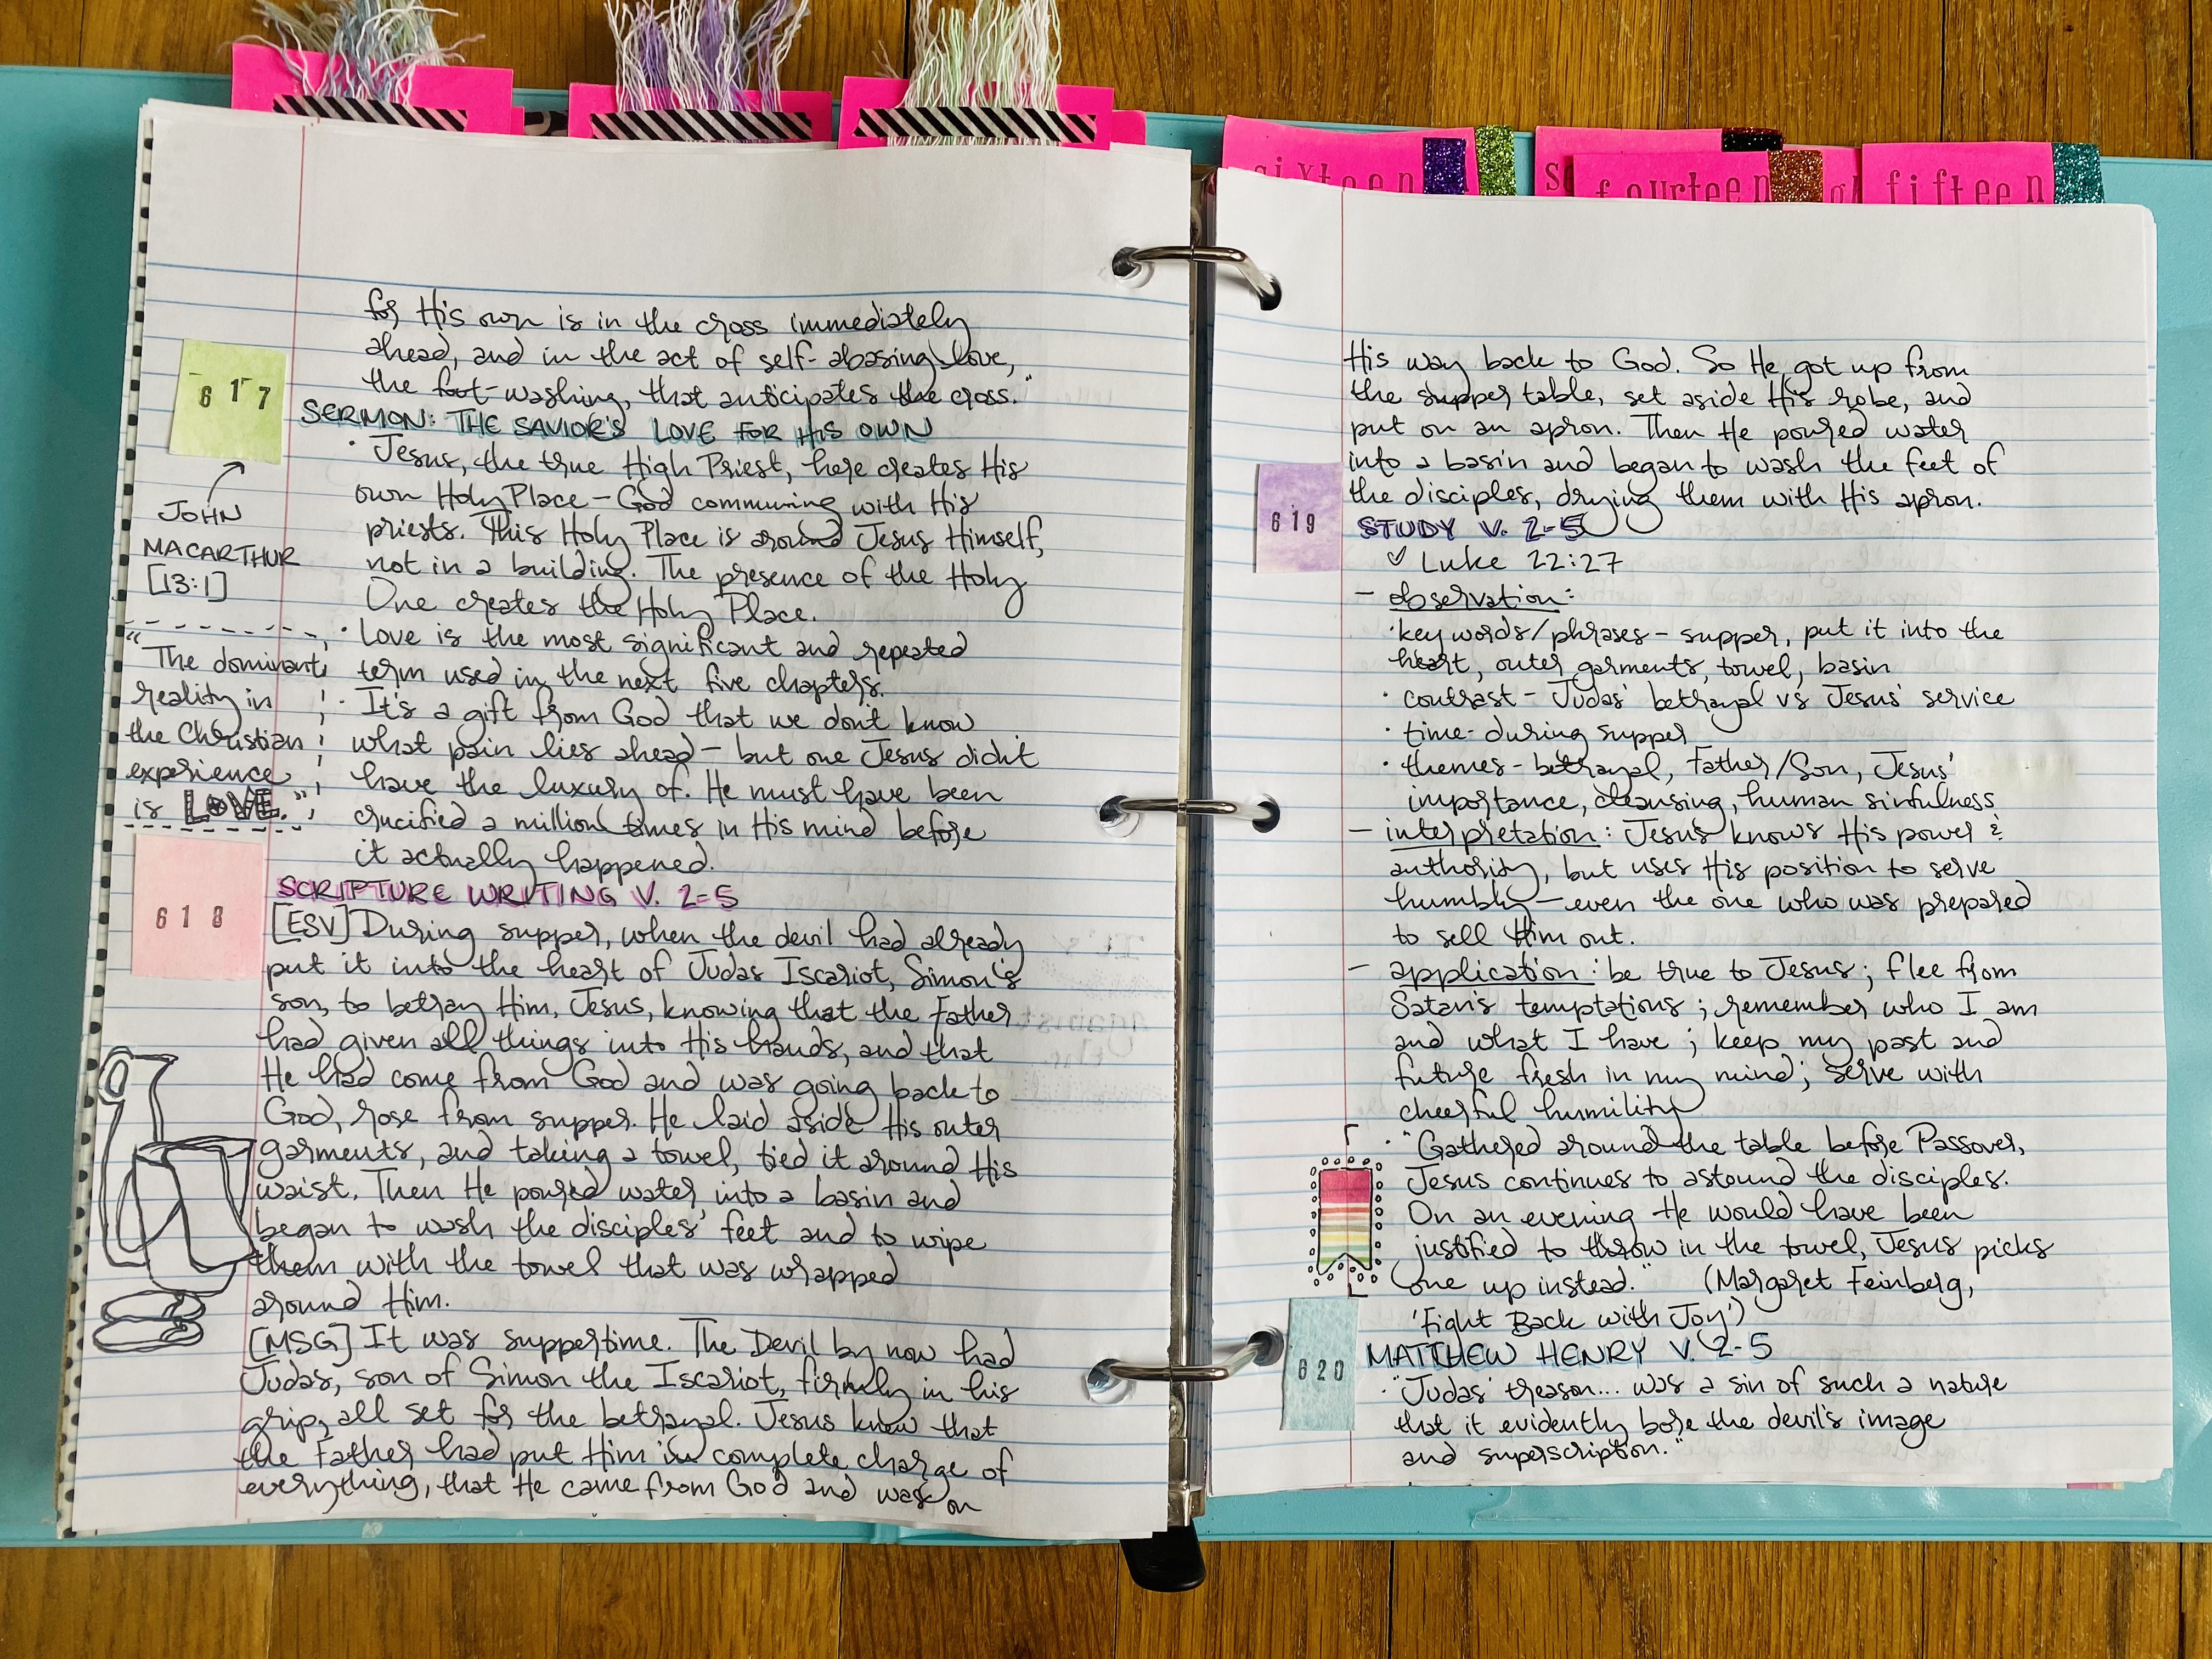 sixteen
fourteen
fifteen
for His own is in the cross immediately
ahead, and in the act of self-abasing love,
the foot-washing, that anticipates the cross."
617
SERMON: THE SAVIOR'S LOVE FOR HIS OWN
JOHN
MACARTHUR
[13:1]
· Jesus, the true High Priest, here creates His
own Holy Place - God communing with His
priests. This Holy Place is around Jesus Himself,
not in a building. The presence of the Holy
One creates the Holy Place.
· Love is the most significant and repeated
term used in the next five chapters.
· It's a gift from God that we don't know
what pain lies ahead - but one Jesus didn't
have the luxury of. He must have been
crucified a million times in His mind before
it actually happened.
"The dominant
reality in
the Christian
experience
is LOVE."
618
SCRIPTURE WRITING V. 2-5
[ESV] During supper, when the devil had already
put it into the heart of Judas Iscariot, Simon's
son, to betray Him, Jesus, knowing that the Father
had given all things into His hands, and that
He had come from God and was going back to
God, rose from supper. He laid aside His outer
garments, and taking a towel, tied it around His
waist. Then He poured water into a basin and
began to wash the disciples' feet and to wipe
them with the towel that was wrapped
around Him.
[MSG] It was suppertime. The Devil by now had
Judas, son of Simon the Iscariot, firmly in his
grip, all set for the betrayal. Jesus knew that
the Father had put Him in complete charge of
everything, that He came from God and was on
His way back to God. So He got up from
the supper table, set aside His robe, and
put on an apron. Then He poured water
into a basin and began to wash the feet of
the disciples, drying them with His apron.
619
STUDY V. 2-5
♡ Luke 22:27
- observation:
· key words/phrases - supper, put it into the
heart, outer garments, towel, basin
· contrast - Judas' betrayal vs Jesus' service
· time - during supper
· themes - betrayal, Father/Son, Jesus'
importance, cleansing, human sinfulness
- interpretation: Jesus knows His power &
authority, but uses His position to serve
humbly - even the one who was prepared
to sell Him out.
- application: be true to Jesus; flee from
Satan's temptations; remember who I am
and what I have; keep my past and
future fresh in my mind; serve with
cheerful humility
· "Gathered around the table before Passover,
Jesus continues to astound the disciples.
On an evening He would have been
justified to throw in the towel, Jesus picks
one up instead." (Margaret Feinberg,
'Fight Back With Joy')
620
MATTHEW HENRY V. 2-5
· "Judas' treason... was a sin of such a nature
that it evidently bore the devil's image
and superscription."